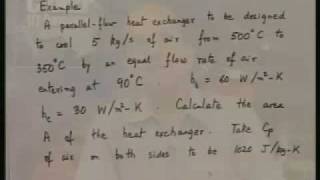 Example:
A parallel-flow heat exchanger to be designed
to cool 5 kg/s of air from 500°C to
350°C by an equal flow rate of air
entering at 90°C. h_i = 60 W/m²-K
h_c = 30 W/m²-K. Calculate the area
A of the heat exchanger. Take Cp
of air on both sides to be 1020 J/kg-K